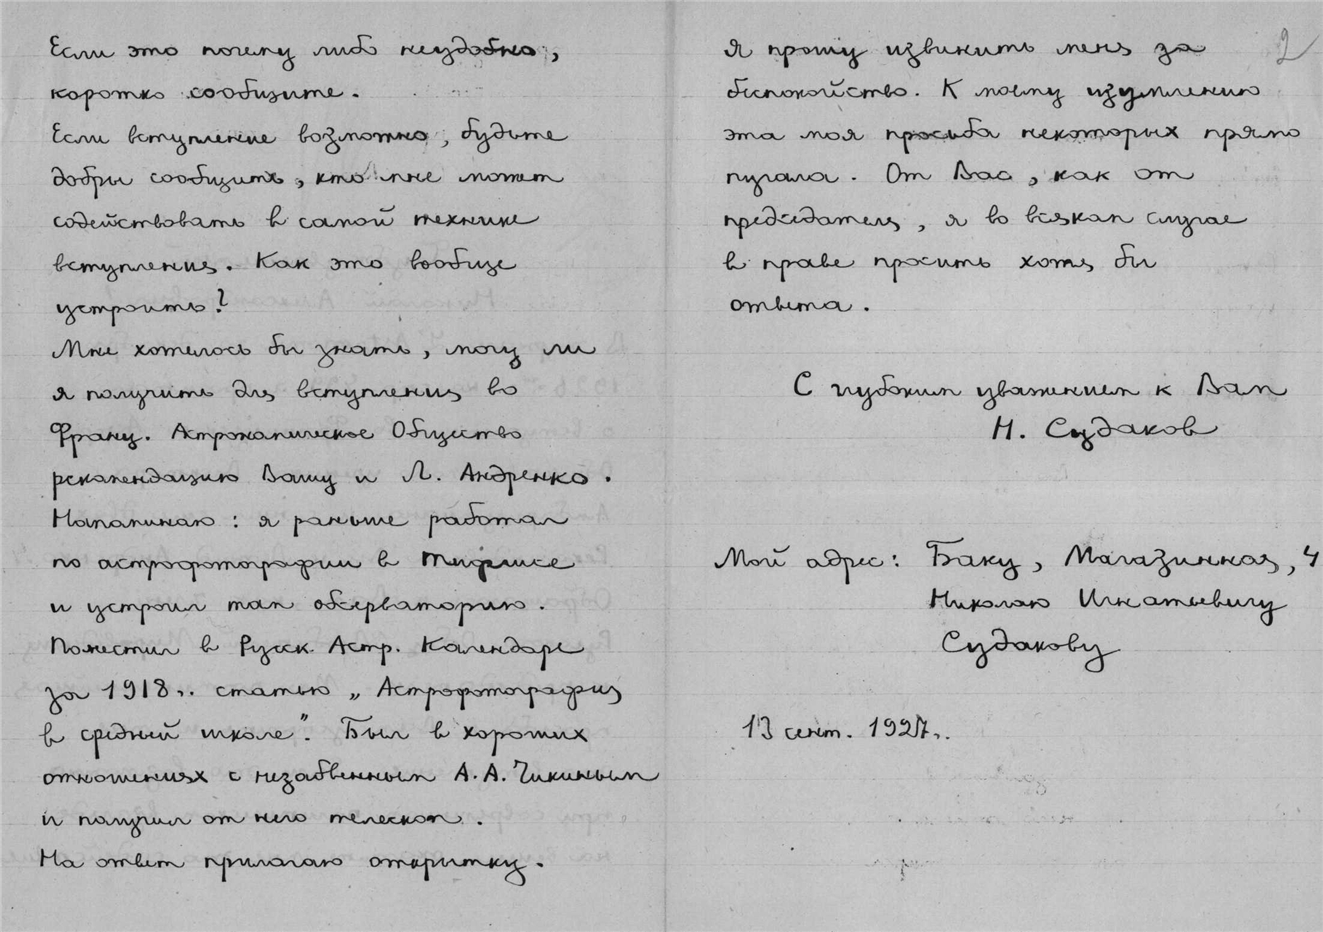 Если это почему либо неудобно,
коротко сообщите.
Если вступление возможно, будьте
добры сообщить, кто мне может
содействовать в самой технике
вступления. Как это вообще
устроить?
Мне хотелось бы знать, могу ли
я получить для вступления во
Франц. Астрономическое Общество
рекомендацию Вашу и Л. Андренко.
Напоминаю: я раньше работал
по астрофотографии в Тифлисе
и устроил там обсерваторию.
Поместил в Русск. Астр. Календаре
за 1918 г. статью „Астрофотография
в средней школе”. Был в хороших
отношениях с незабвенным А. А. Чикиным
и получил от него телескоп.
На ответ прилагаю открытку.
2
Я прошу извинить меня за
беспокойство. К моему изумлению
эта моя просьба некоторых прямо
пугала. От Вас, как от
председателя, я во всяком случае
в праве просить хотя бы
ответа.
С глубоким уважением к Вам
Н. Судаков
Мой адрес: Баку, Магазинная, 4
Николаю Игнатьевичу
Судакову
13 сент. 1927 г.